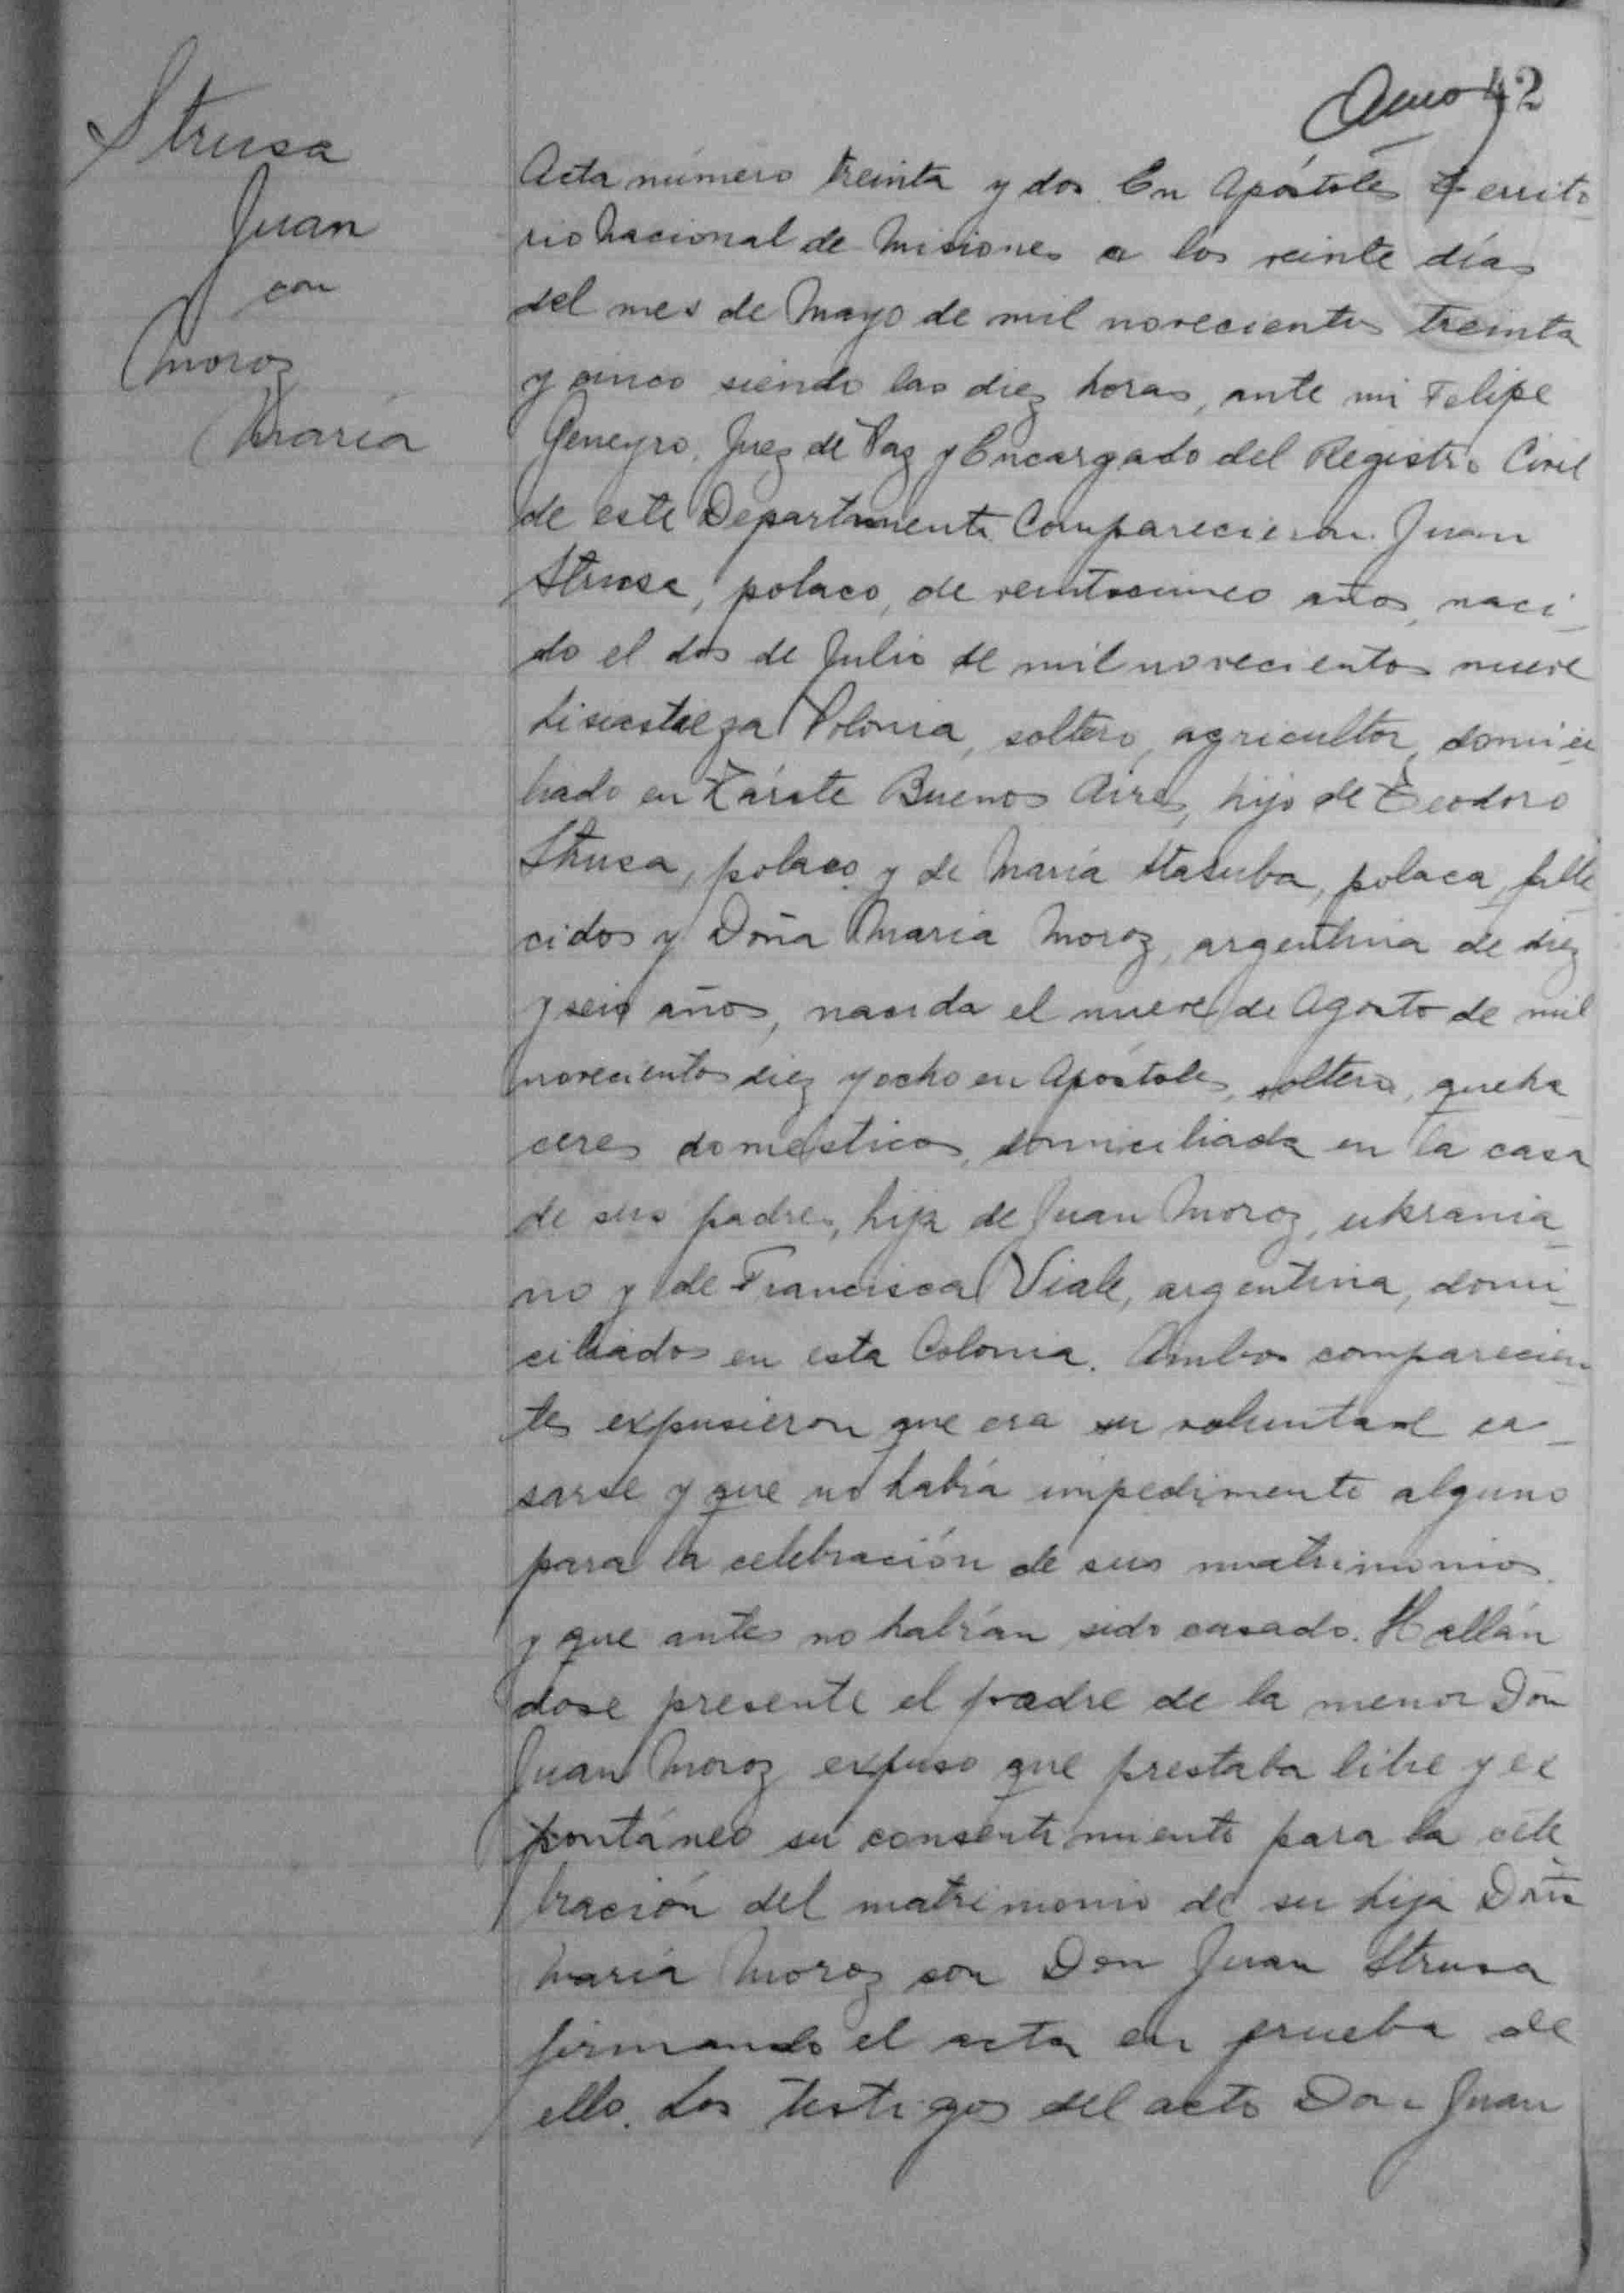 Strusa
Juan
con
Moroz
María
42
Acta número treinta y dos. En Apóstoles Territo-
rio Nacional de Misiones a los veinte días
del mes de Mayo de mil novecientos treinta
y cinco siendo las diez horas, ante mi Felipe
Geneyro, Juez de Paz y Encargado del Registro Civil
de este Departamento Comparecieron. Juan
Strusa, polaco, de veintecinco años, naci-
do el dos de Julio de mil novecientos nueve
Polonia, soltero, agricultor, domici-
liado en Zárate Buenos Aires, hijo de Teodoro
Strusa, polaco y de María Stasuba, polaca, falle-
cidos y Doña María Moroz, argentina de diez
y seis años, nacida el nueve de Agosto de mil
novecientos diez y ocho en Apóstoles, soltera, queha-
ceres domésticos, domiciliada en la casa
de sus padres, hija de Juan Moroz, ukrania-
no y de Francisca Viale, argentina, domi-
ciliados en esta Colonia. Ambos comparecien-
tes expusieron que era su voluntad ca-
sarse y que no había impedimento alguno
para la celebración de sus matrimonios
y que antes no habían sido casado. Hallán
dose presente el padre de la menor Don
Juan Moroz expuso que prestaba libre y ex
pontáneo su consentimiento para la cele-
bración del matrimonio de su hija Doña
María Moroz con Don Juan Strusa
firmando el acta en prueba de
ello. Los testigos del acto Don Juan